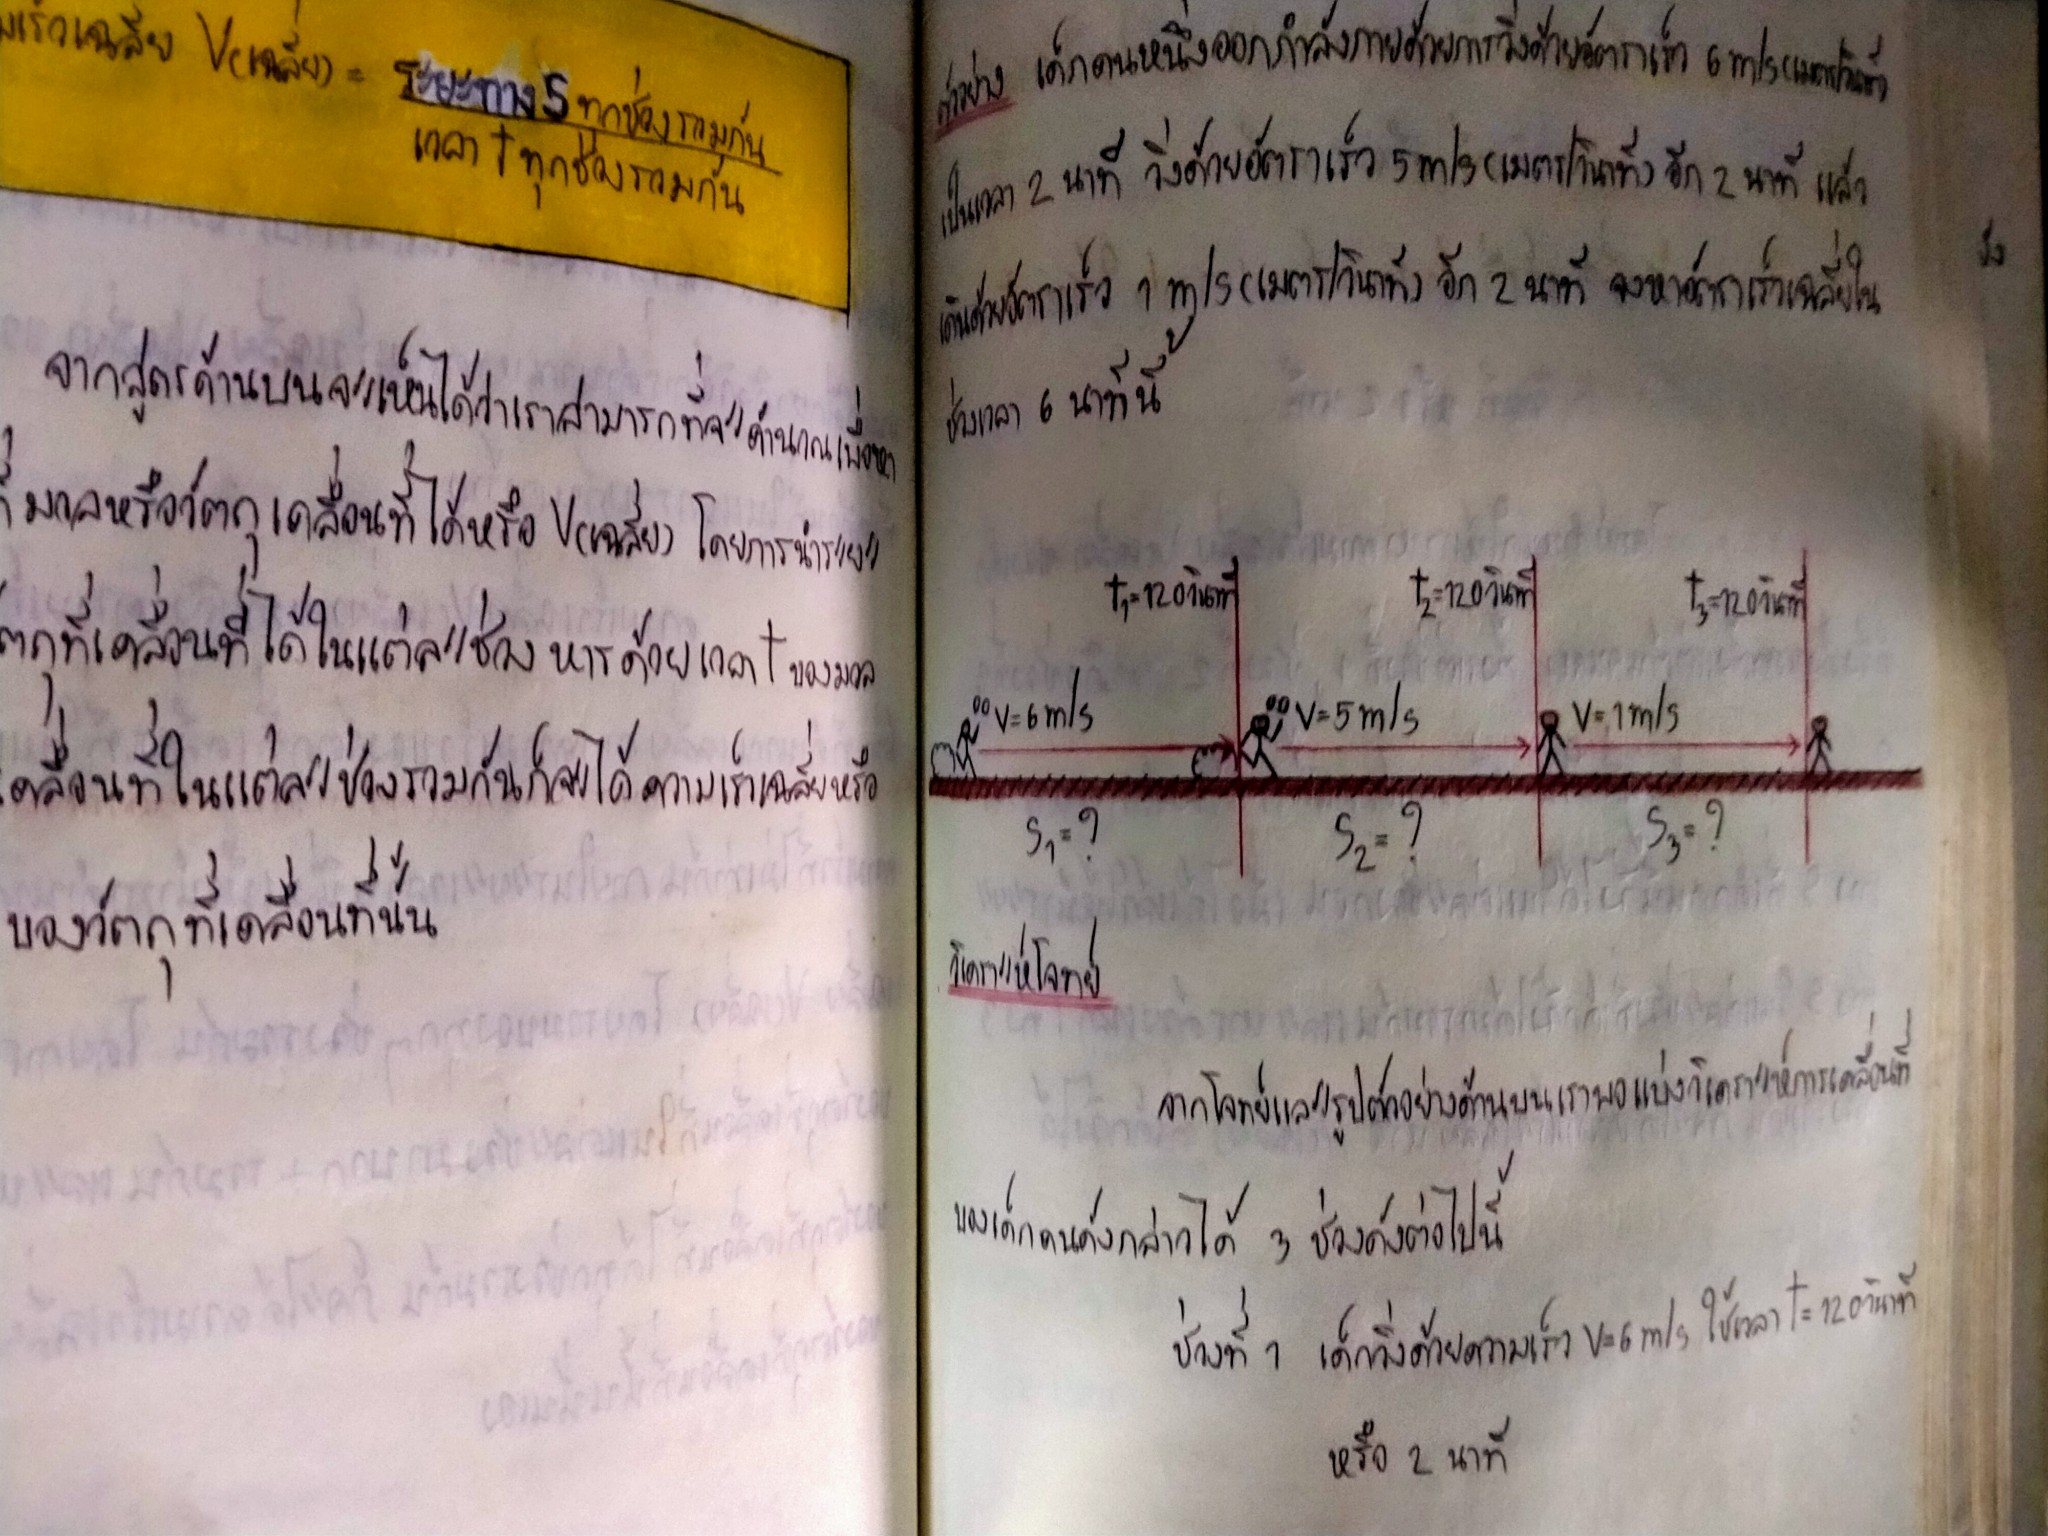 เร็วเฉลี่ย V(เฉลี่ย) = ระยะทาง S ทุกช่วงรวมกัน
เวลา t ทุกช่วงรวมกัน
จากสูตรด้านบนจะเห็นได้ว่าเราสามารถที่จะคำนวณเพื่อหา
ที่มวลหรือวัตถุเคลื่อนที่ได้หรือ V(เฉลี่ย) โดยการนำระยะ
วัตถุที่เคลื่อนที่ได้ในแต่ละช่วง หารด้วยเวลา t ของมวล
เคลื่อนที่ในแต่ละช่วงรวมกันก็จะได้ความเร็วเฉลี่ยหรือ
ของวัตถุที่เคลื่อนที่นั้น
ตัวอย่าง เด็กคนหนึ่งออกกำลังกายด้วยการวิ่งด้วยอัตราเร็ว 6 m/s (เมตร/วินาที)
เป็นเวลา 2 นาที วิ่งด้วยอัตราเร็ว 5 m/s (เมตร/วินาที) อีก 2 นาที แล้ว
เดินด้วยอัตราเร็ว 1 m/s (เมตร/วินาที) อีก 2 นาที จงหาอัตราเร็วเฉลี่ยใน
ช่วงเวลา 6 นาทีนี้
t1=120วินาที t2=120วินาที t3=120วินาที
V=6m/s V=5m/s V=1m/s
S1=? S2=? S3=?
วิเคราะห์โจทย์
จากโจทย์และรูปตัวอย่างด้านบนเราพอแบ่งวิเคราะห์การเคลื่อนที่
ของเด็กคนดังกล่าวได้ 3 ช่วงดังต่อไปนี้
ช่วงที่ 1 เด็กวิ่งด้วยความเร็ว V=6m/s ใช้เวลา t=120วินาที
หรือ 2 นาที